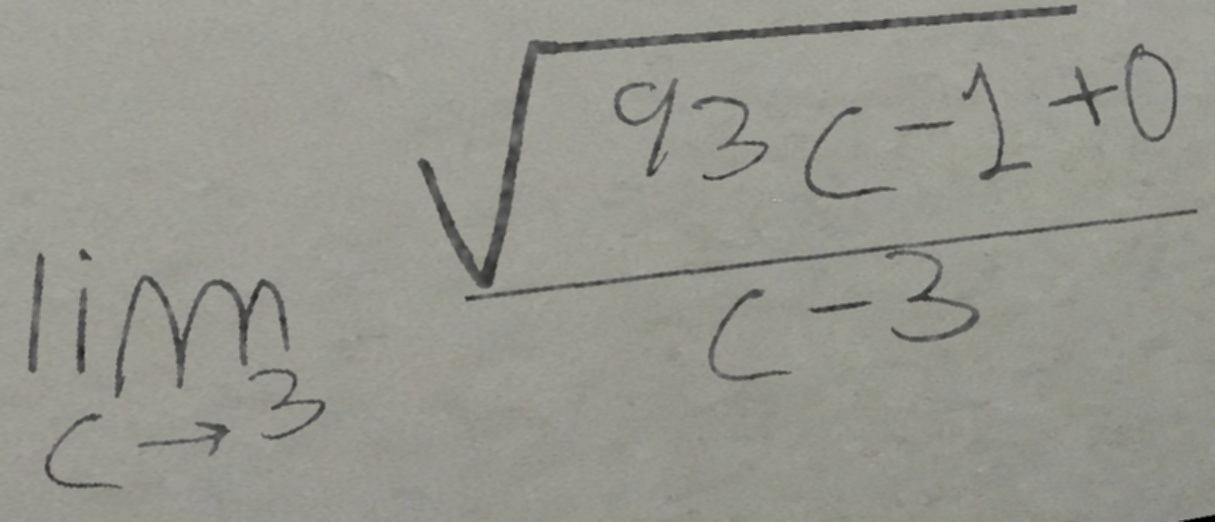 \lim_{c \to 3} \frac{\sqrt{93c-1+0}}{c-3}